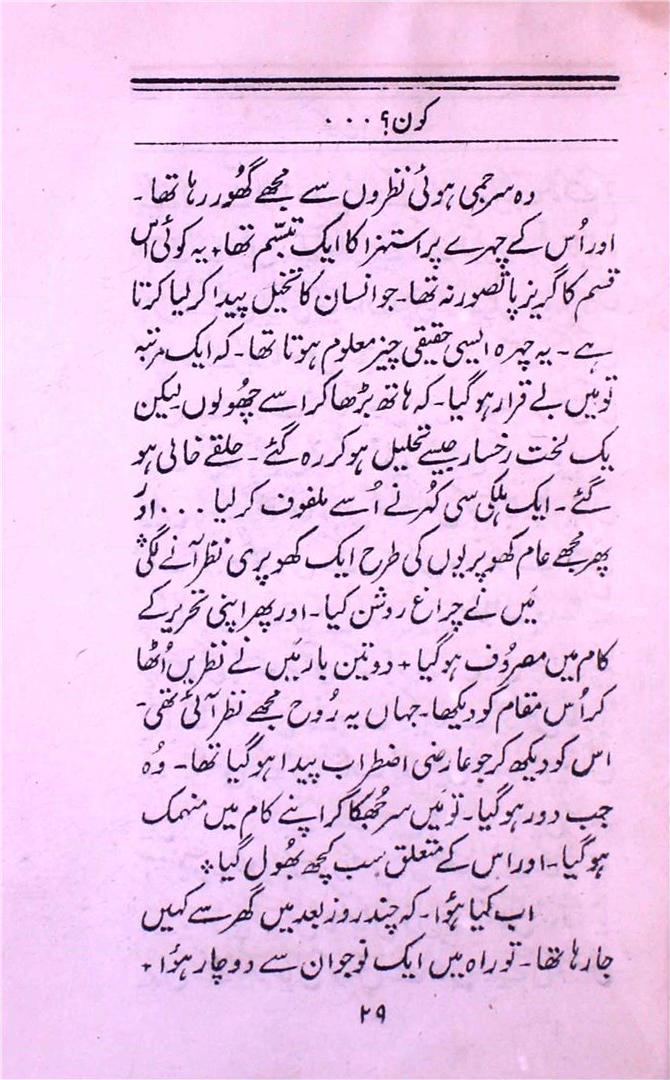 کون؟ ...
وہ سر جمی ہوئی نظروں سے مجھے گھُور رہا تھا۔
اور اُس کے چہرے پر استہزا کا ایک تبسّم تھا+ یہ کوئی اس
قسم کا گریز پا تصور نہ تھا۔ جو انسان کا تخیل پیدا کر لیا کرتا
ہے۔ یہ چہرہ ایسی حقیقی چیز معلوم ہوتا تھا۔ کہ ایک مرتبہ
تو میں بے قرار ہو گیا۔ کہ ہاتھ بڑھا کر اسے چھولوں لیکن
یک لخت رخسار جیسے تحلیل ہو کر رہ گئے۔ حلقے خالی ہو
گئے۔ ایک ہلکی سی کُہر نے اُسے ملفوف کر لیا ... اور
پھر مجھے عام کھوپریوں کی طرح ایک کھوپری نظر آنے لگی÷
مَیں نے چراغ روشن کیا۔ اور پھر اپنی تحریر کے
کام میں مصرُوف ہو گیا+ دو تین بار مَیں نے نظریں اُٹھا
کر اُس مقام کو دیکھا۔ جہاں یہ رُوح مجھے نظر آئی تھی۔
اس کو دیکھ کر جو عارضی اضطراب پیدا ہو گیا تھا۔ وُہ
جب دور ہو گیا۔ تو مَیں سر جُھکا کر اپنے کام میں منہمک
ہو گیا۔ اور اس کے متعلق سب کچھ بھُول گیا÷
اب کیا ہؤا۔ کہ چند روز بعد میں گھر سے کہیں
جا رہا تھا۔ تو راہ میں ایک نوجوان سے دو چار ہؤا+
۲۹